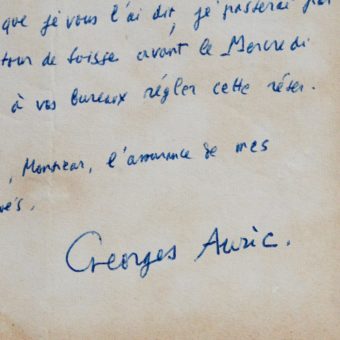 que je vous l'ai dit, je passerai par
tour de Suisse avant le Mercredi
à vos bureaux régler cette réser.
, Monsieur, l'assurance de mes
és.
Georges Auric.